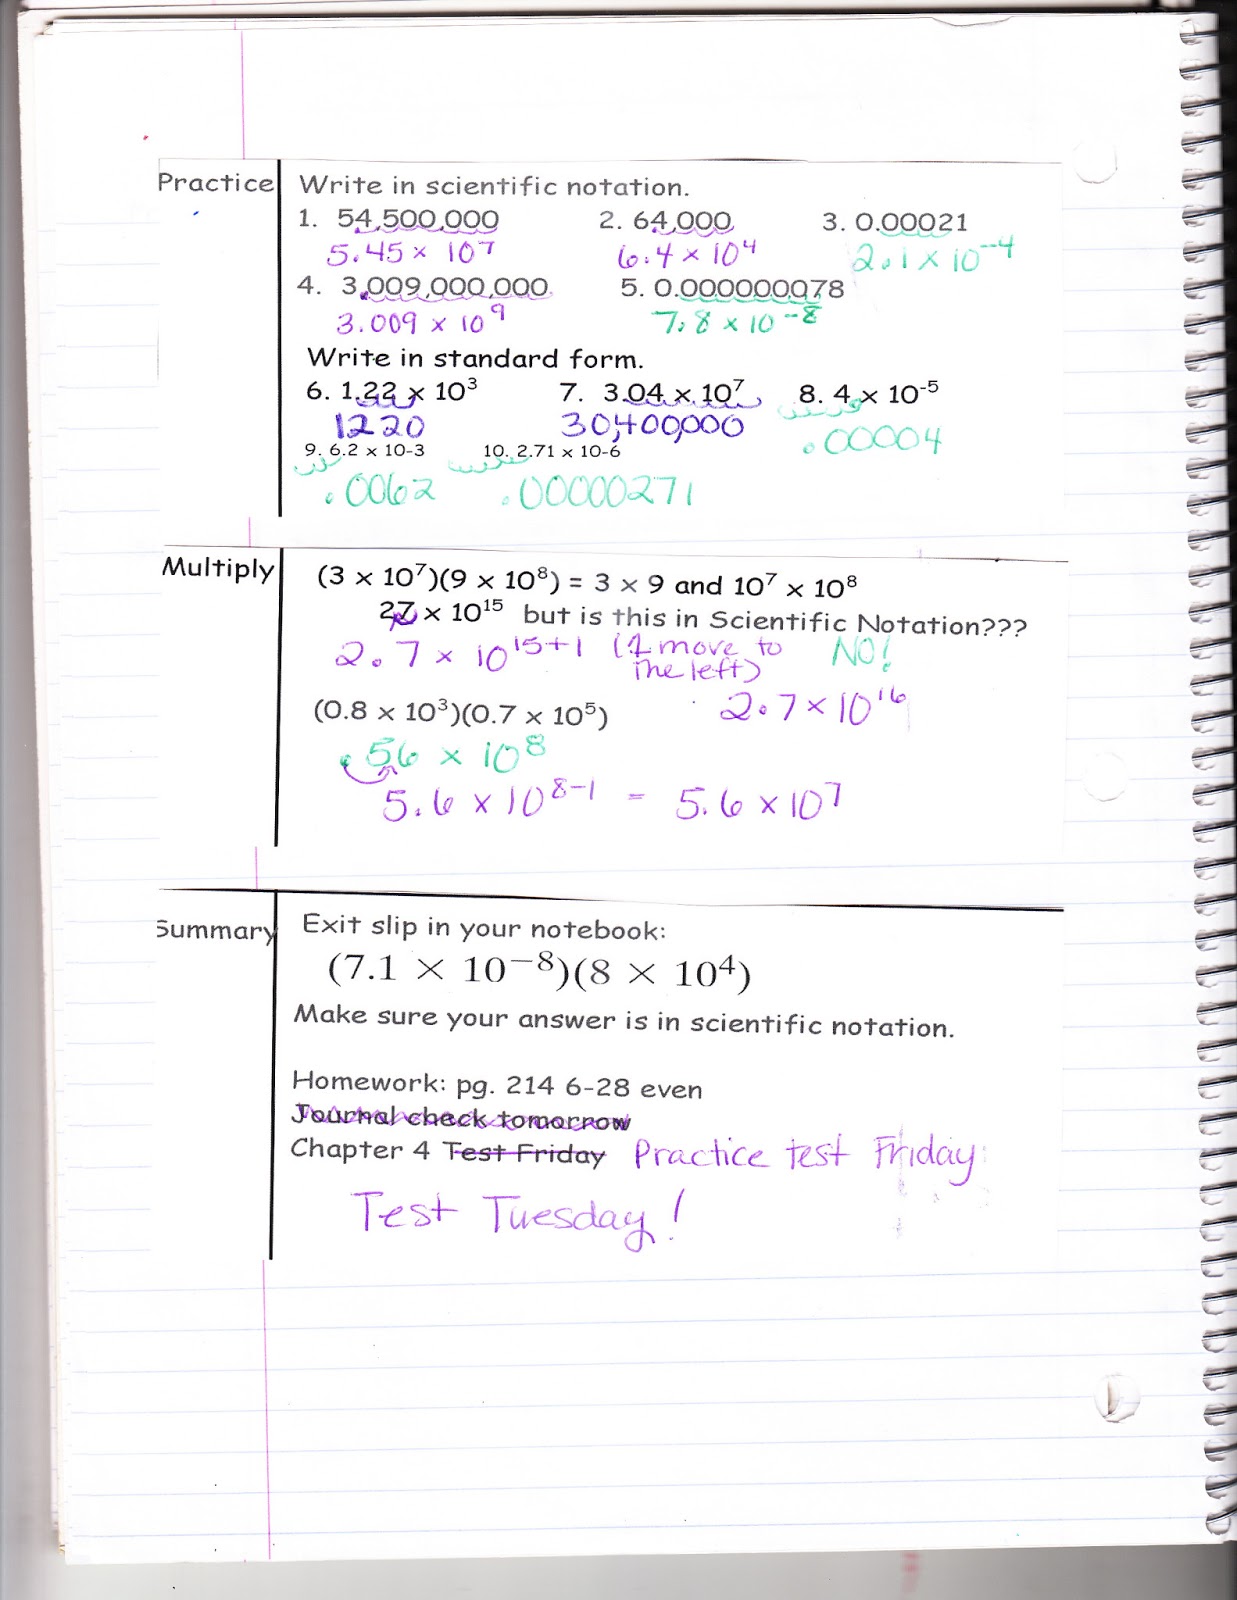 Practice
Write in scientific notation.
1. 54,500,000 2. 64,000 3. 0.00021
5.45 × 10⁷ 6.4 × 10⁴ 2.1 × 10⁻⁴
4. 3,009,000,000 5. 0.000000078
3.009 × 10⁹ 7.8 × 10⁻⁸
Write in standard form.
6. 1.22 × 10³ 7. 3.04 × 10⁷ 8. 4 × 10⁻⁵
1220 30,400,000 .00004
9. 6.2 x 10-3 10. 2.71 x 10-6
.0062 .00000271
Multiply
(3 × 10⁷)(9 × 10⁸) = 3 × 9 and 10⁷ × 10⁸
27 × 10¹⁵ but is this in Scientific Notation???
2.7 × 10¹⁵⁺¹ (1 move to NO!
the left)
(0.8 × 10³)(0.7 × 10⁵) 2.7 × 10¹⁶
.56 × 10⁸
5.6 × 10⁸⁻¹ = 5.6 × 10⁷
Summary
Exit slip in your notebook:
(7.1 × 10⁻⁸)(8 × 10⁴)
Make sure your answer is in scientific notation.
Homework: pg. 214 6-28 even
Journal check tomorrow
Chapter 4 Test Friday Practice test Friday
Test Tuesday!